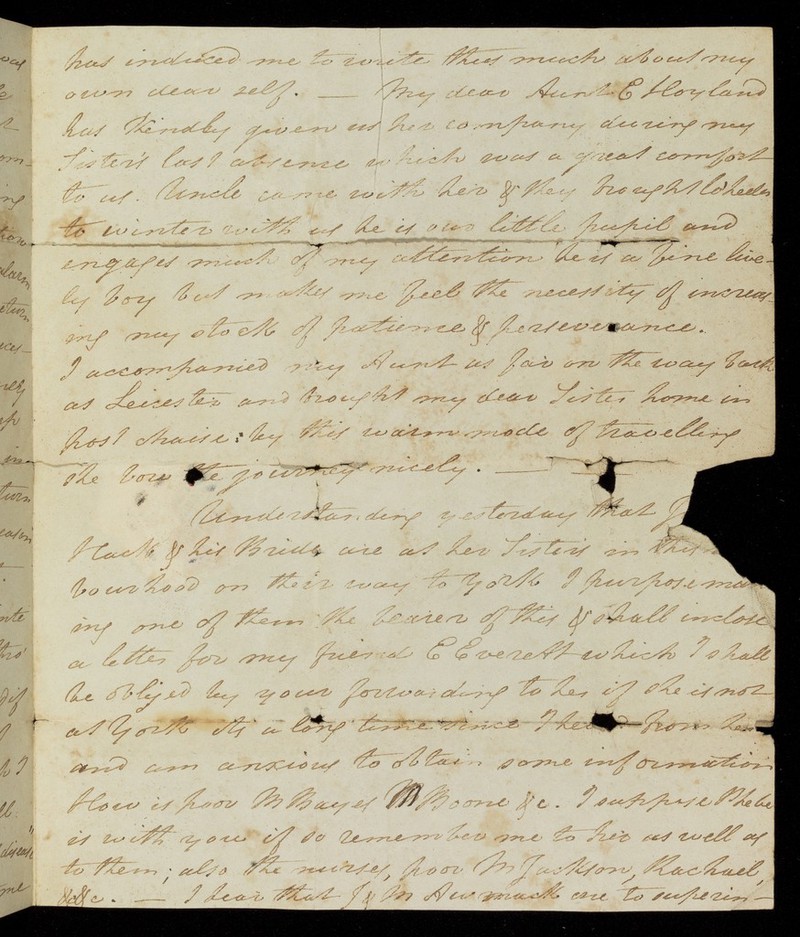 has induced me to write thus much about my
own dear self. — My dear Aunt E Hoyland
has kindly given us her company during my
Sister's last absence which was a great comfort
to us. Uncle came with her & they brought
to winter with us he is our little pupil and
engages much of my attention he is a fine live-
ly boy but makes me feel the necessity of increas-
ing my stock of patience & perseverance.
I accompanied my Aunt as far on the way back
as Leicester and brought my dear Sister home in
post chaise: by this warm mode of travelling
she bore the journey nicely. —
Understanding yesterday that J
& his Bride are at her Sister's in this
bourhood on their way to York I purpose
ing one of them the bearer of this & shall inclose
a letter for my friend E Everett which I shall
be obliged by your forwarding to her if she is not
at York its a long time since I heard from her
and am anxious to obtain some information
How is poor M Bayes M Boone &c. I suppose Phebe
is with you if so remember me to her as well as
to them; also the nurses, poor M Jackson, Rachael,
&c &c. — I hear that J & M Awmack are to superin-